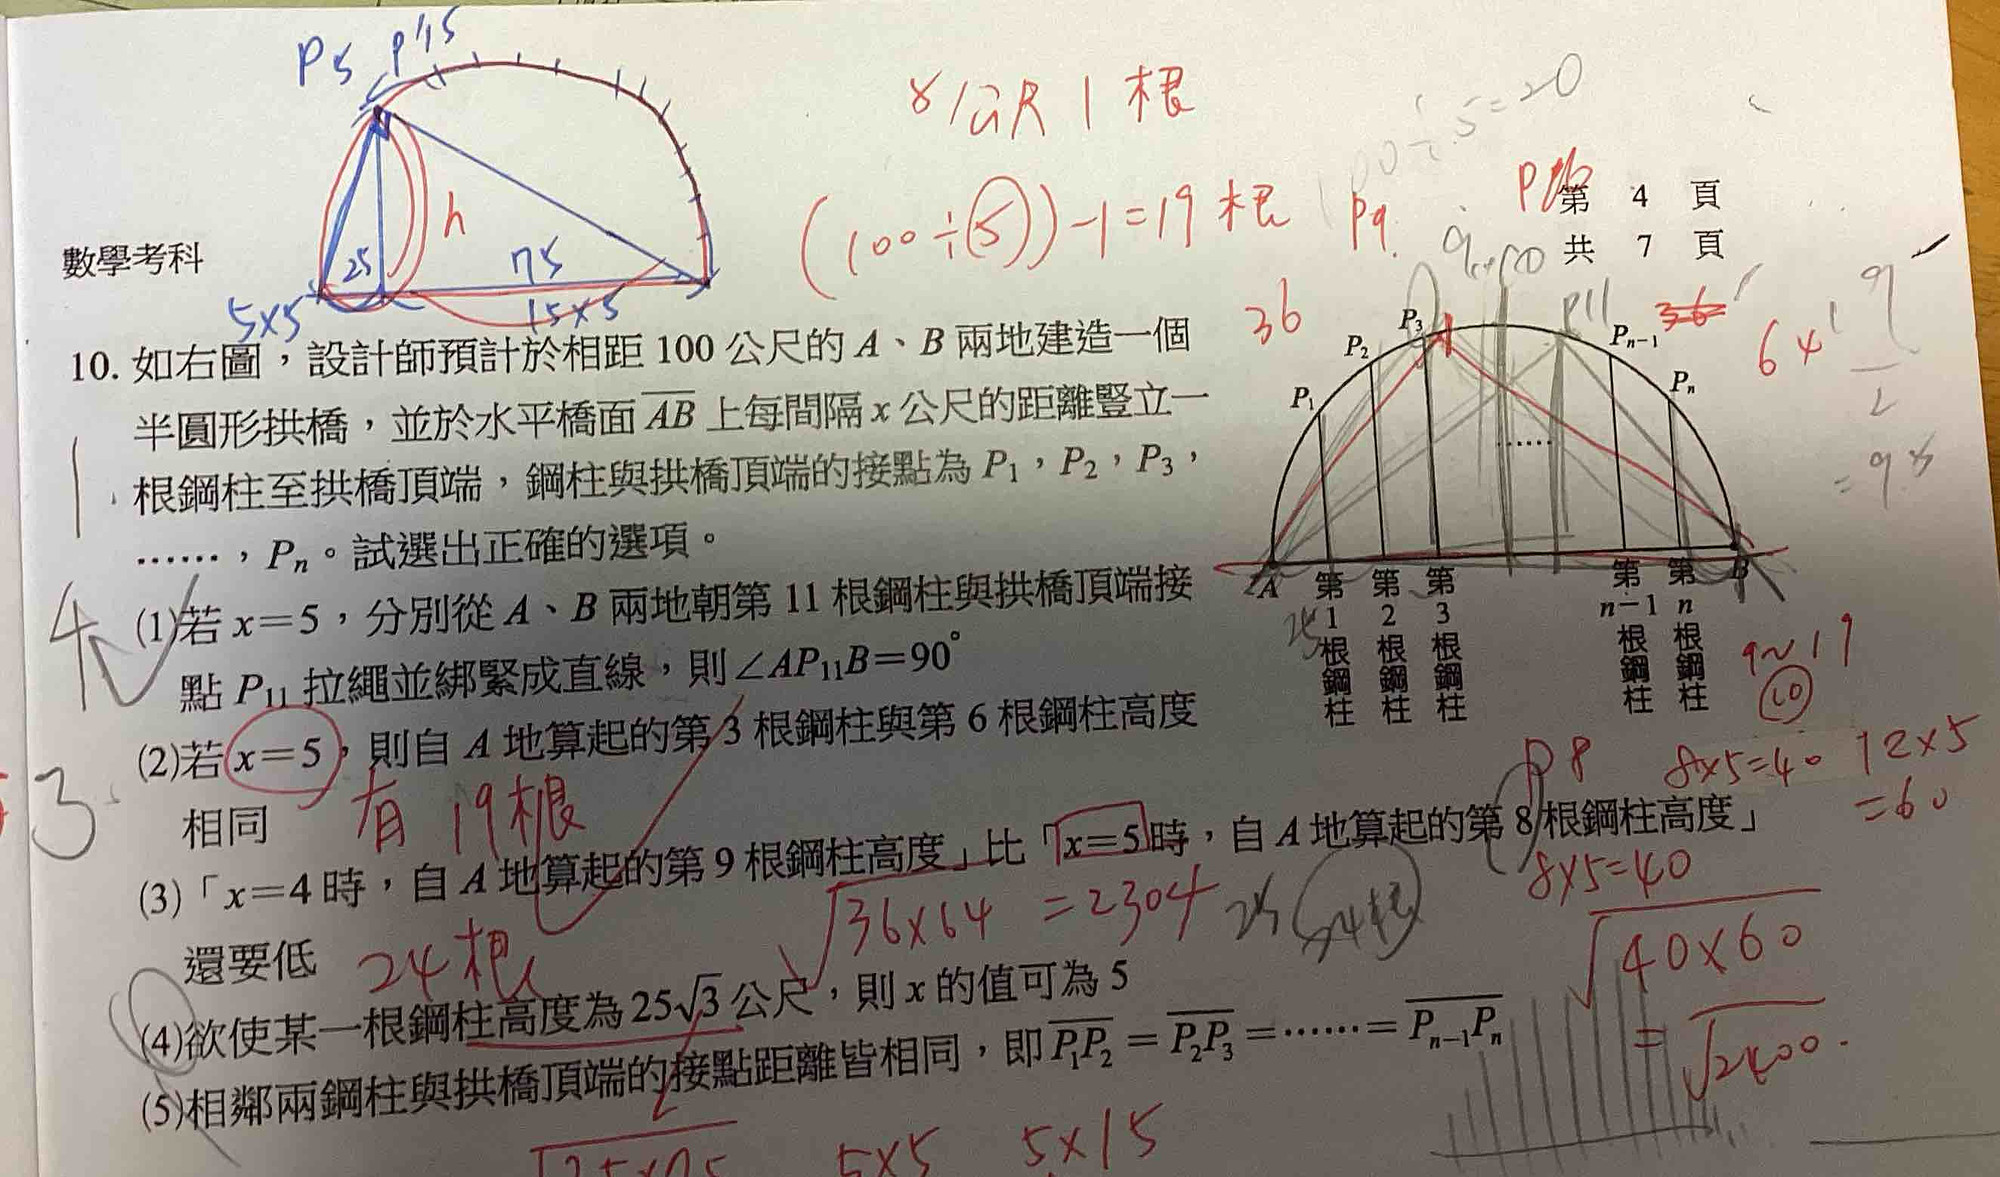 P5 P15
h
25 75
5×5 15×5
x公尺1根
100÷5=20
(100÷(5))-1=19根
P9
第 4 頁
共 7 頁
數學考科
36
P11
36
6×
9
10. 如右圖,設計師預計於相距 100 公尺的 A、B 兩地建造一個
半圓形拱橋,並於水平橋面 $\overline{AB}$ 上每間隔 x 公尺的距離豎立一
根鋼柱至拱橋頂端,鋼柱與拱橋頂端的接點為 P₁,P₂,P₃,
……,Pₙ。試選出正確的選項。
(1)若 x=5,分別從 A、B 兩地朝第 11 根鋼柱與拱橋頂端接
點 P₁₁ 拉繩並綁緊成直線,則∠AP₁₁B=90°
(2)若 x=5,則自 A 地算起的第 3 根鋼柱與第 6 根鋼柱高度
相同
有19根
(3)「x=4 時,自 A 地算起的第 9 根鋼柱高度」比「x=5 時,自 A 地算起的第 8 根鋼柱高度」
還要低
24根
√36×64 =2304
25
(4)欲使某一根鋼柱高度為 25√3 公尺,則 x 的值可為 5
(5)相鄰兩鋼柱與拱橋頂端的接點距離皆相同,即 $\overline{P_1P_2}=\overline{P_2P_3}=……=\overline{P_{n-1}P_n}$
P₁
P₂
P₃
Pₙ₋₁
Pₙ
……
A
B
第1根鋼柱
第2根鋼柱
第3根鋼柱
第n-1根鋼柱
第n根鋼柱
9~19
10
P8
8×5=40
12×5
=60
8×5=40
√40×60
=√2400
3
√25×75
5×5 5×15